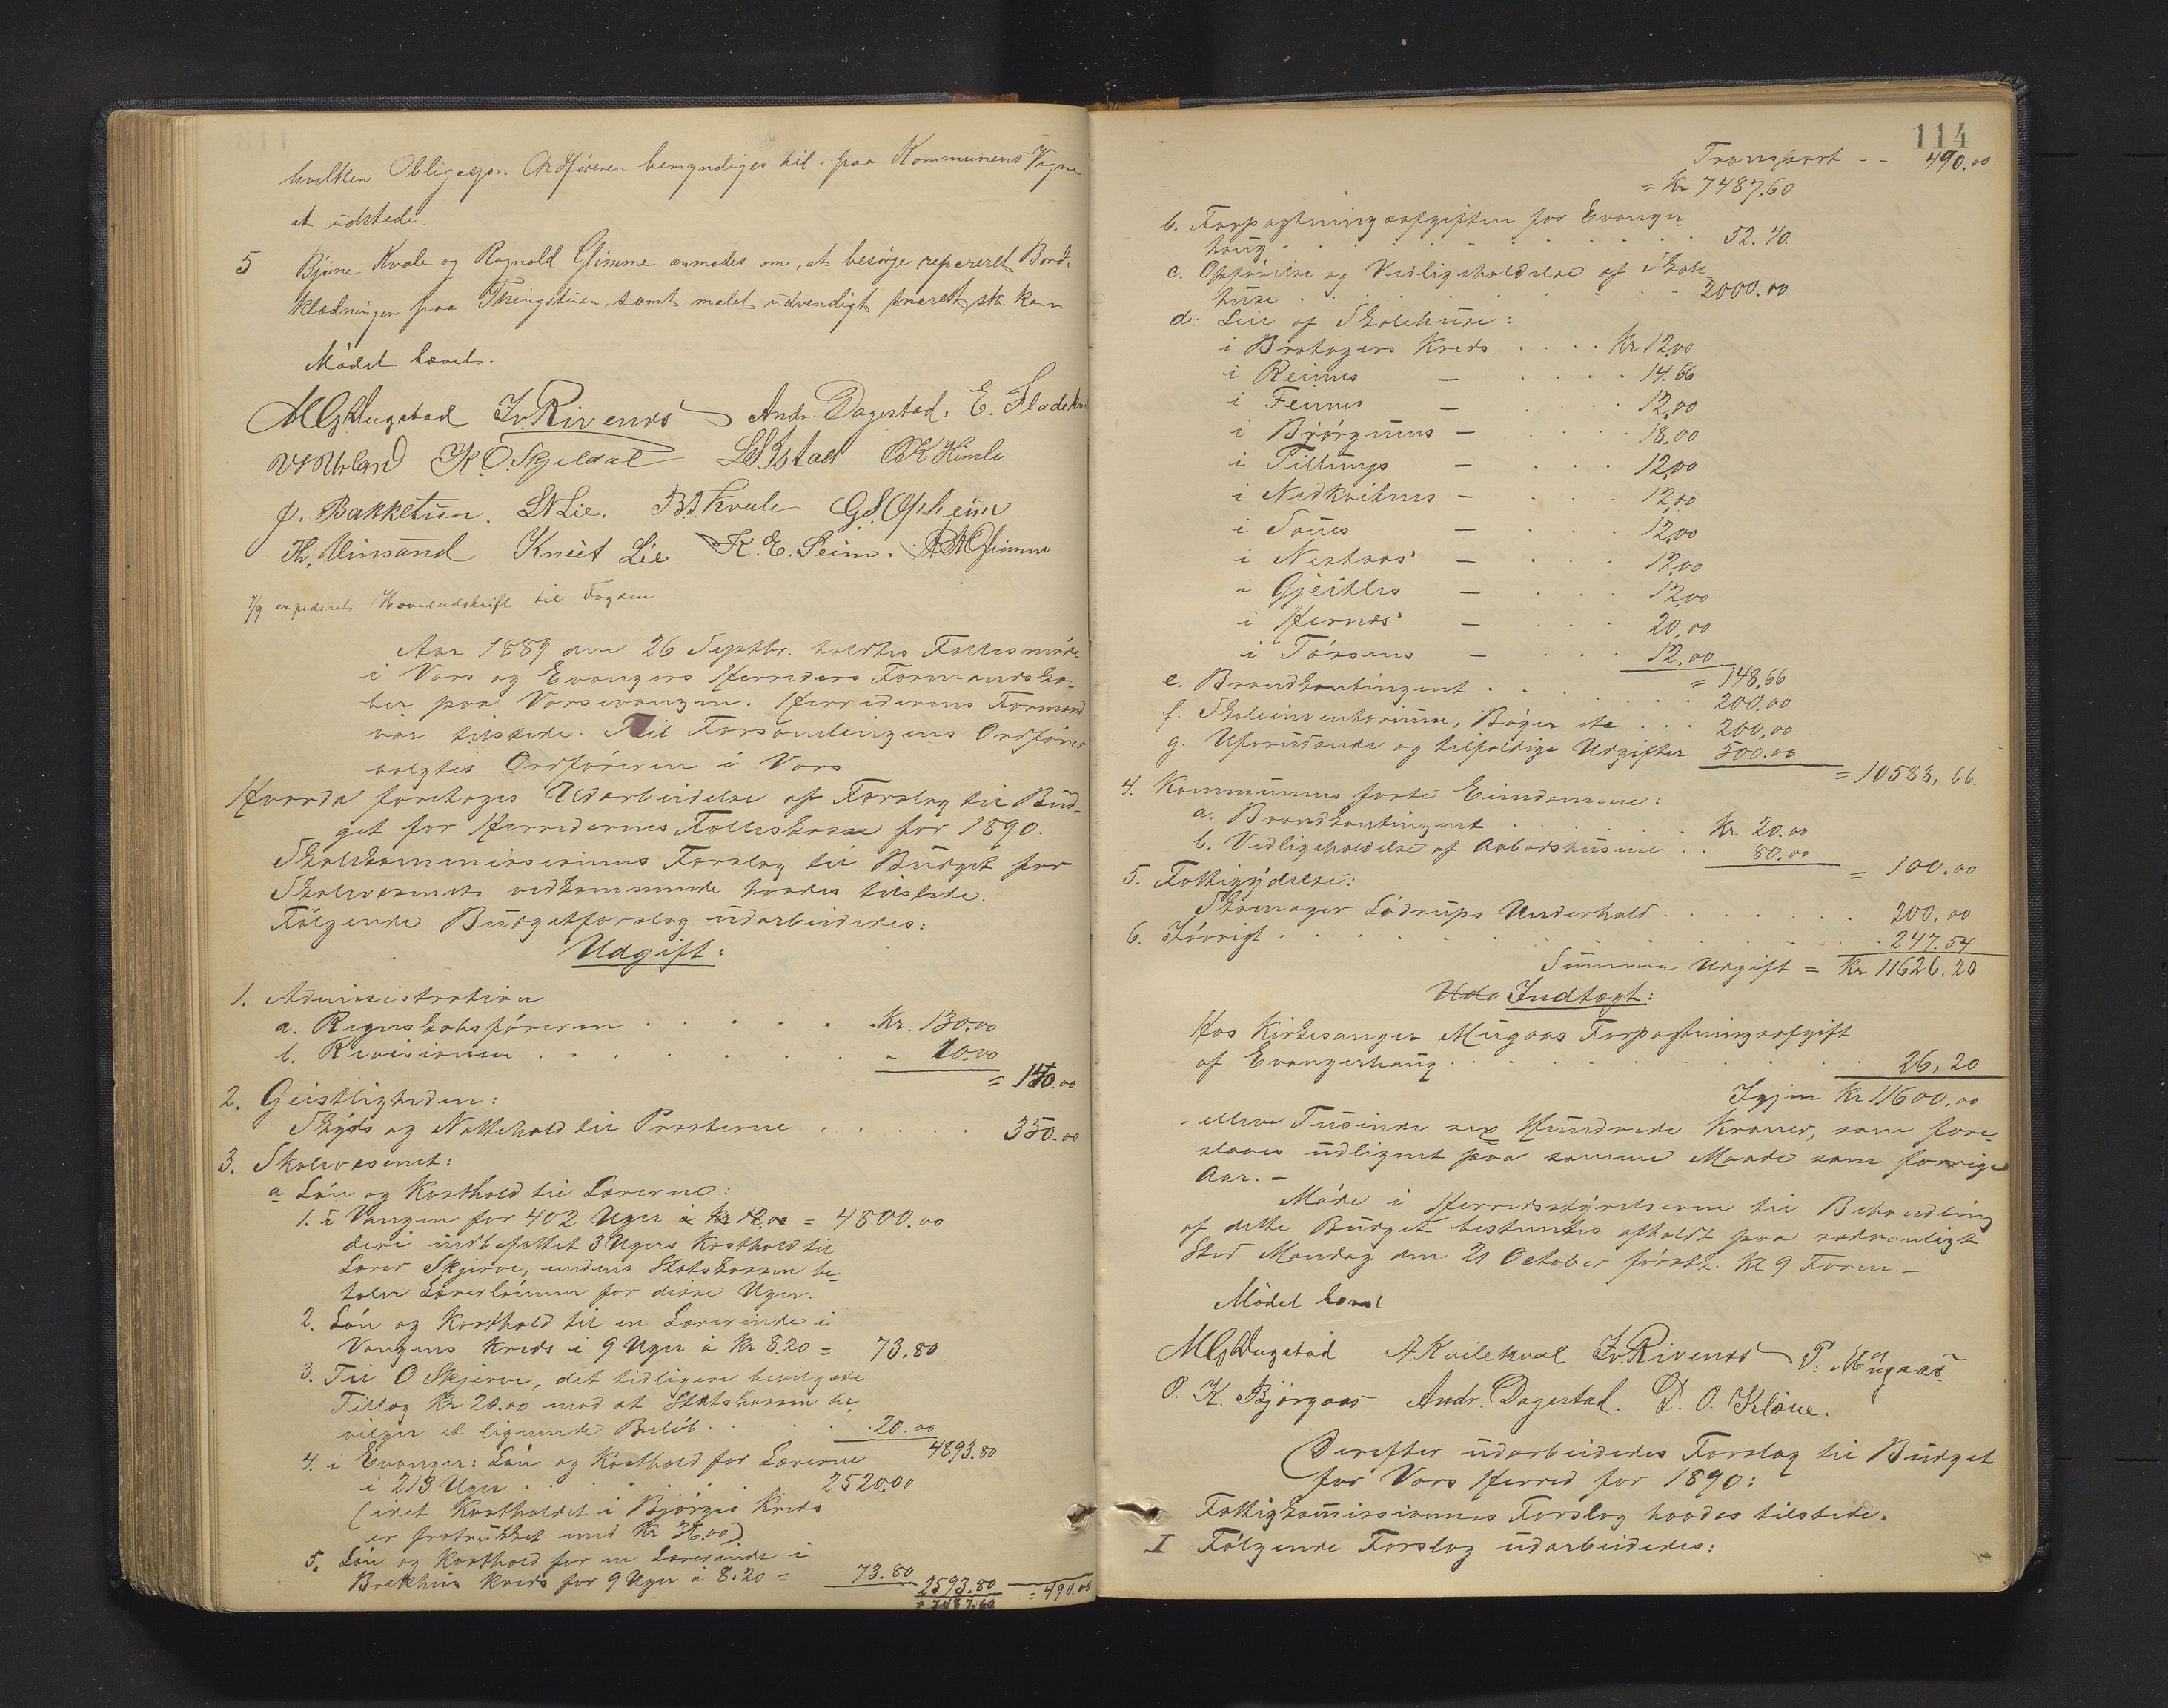 hvilken Obligasjon Ordføreren bemyndiges til, paa Kommunens Vegne
at udstede.
5 Bjørne Kvale og Ragnald Glimme anmodes om, at besørge repareret Bord-
klædningen paa Thingstuen, samt malet udvendigt snarest ske kan
Mødet hævet.
MGDugstad Iv. Rivenæs Andr. Dagestad. E. Flade
K O. Skjeldal OK Himle
J. Bakketun. LNLie. B.T. Kvale G.S. Opheim
Th. Vinsand Knut Lie K. E. Seim. RAGlimme
7/9 expederet Hovedudskrift til Fogden
Aar 1889 den 26 Septbr. holdtes Fællesmøde
i Vors og Evangers Herreders Formandska-
ber paa Vorsevangen. Herredernes Formænd
var tilstede. Til Forsamlingens Ordfører
valgtes Ordføreren i Vors
Hvorda foretoges Udarbeidelse af Forslag til Bud-
get for Herredernes Felleskasse for 1890.
Skolekommissionens Forslag til Budget for
Skolevæsenets vedkommende havdes tilstede.
Følgende Budgetforslag udarbeidedes:
Udgift:
1. Administration
a. Regnskabsføreren . . . . . Kr. 130.00
b. Revisionen . . . . . . . " 10.00
= 140.00
2. Geistligheden:
Skyds og Nattehold til Præsterne . . . . . 350.00
3. Skolevæsenet:
a Løn og Kosthold til Lærerne:
1. i Vangen for 402 Uger à Kr 12.00 = 4800.00
deri indbefattet 3 Ugers Kosthold til
Lærer Skjerve, medens Statskassen be-
taler Lærerlønnen for disse Uger.
2. Løn og Kosthold til en Lærerinde i
Vangens Kreds i 9 Uger à Kr 8.20 = 73.80
3. Til O Skjerve, det tidligere bevilgede
Tillæg Kr 20.00 mod at Statskassen be-
vilger et lignende Beløb . . . . . 20.00
4893.80
4. i Evanger: Løn og Kosthold for Lærerne
i 213 Uger . . . . . . . 2520.00
(idet Kostholdet i Bjørgs Kreds
er fratrukket med Kr 36.00)
5. Løn og Kosthold for en Lærerinde i
Brekhus Kreds for 9 Uger à 8.20 = 73.80
2593.80 = 490.00
= 7487.60
114
Transport - - 490.00
= Kr 7487.60
b. Forpagtningsafgiften for Evanger-
haug . . . . . . . . . . 52.40.
c. Opførelse og Vedligeholdelse af Skole-
huse . . . . . . . . . . 2000.00
d: Leie af Skolehuse:
i Bratagers Kreds . . . . Kr 12.00
i Reimes — . . . . 14.66
i Feimes — . . . 12.00
i Bjørgums — . . . . 18.00
i Tillungs — . . . 12.00
i Nedkvitnes — . . . 12.00
i Soues — . . . 12.00
i Nestaas — . . . 12.00
i Gjeitles — . . . 12.00
i Hernes — . . . 20.00
i Tøssens — . . . 12.00
= 148.66
e. Brandkontingent . . . . . . . 200.00
f. Skoleinventarium, Bøger etc . . . 200.00
g. Uforudseede og tilfældige Udgifter 500.00
= 10588,66.
4. Kommunens faste Eiendomme:
a. Brandkontingent . . . . . . Kr 20.00
b. Vedligeholdelse af Aabodshusene . . 80.00
= 100.00
5. Fattigydelse:
Skomager Lødrups Underhold . . . . . . . . 200,00
6. Iøvrigt . . . . . . . . . . . . . 247.54
Summa Udgift = Kr 11626.20
Udg Indtægt:
Hos Kirkesanger Mugaas Forpagtningsafgift
af Evangerhaug . . . . . . . . . . . 26,20
Igjen Kr 11600.00
- elleve Tusinde sex Hundrede Kroner, som fore-
slaaes udlignet paa samme Maade som forrige
Aar. -
Møde i Herredsstyrelserne til Behandling
af dette Budget bestemtes afholdt paa sædvanligt
Sted Mandag den 21 October førstk. Kl 9 Form. -
Mødet hævet
MGDugstad A. Kvilekval Iv. Rivenæs P. Mugaas.
O. K. Bjørgaas Andr. Dagestad. D. O. Kløve.
Derefter udarbeidedes Forslag til Budget
for Vors Herred for 1890:
Fattigkommissionens Forslag havdes tilstede.
I Følgende Forslag udarbeidedes: